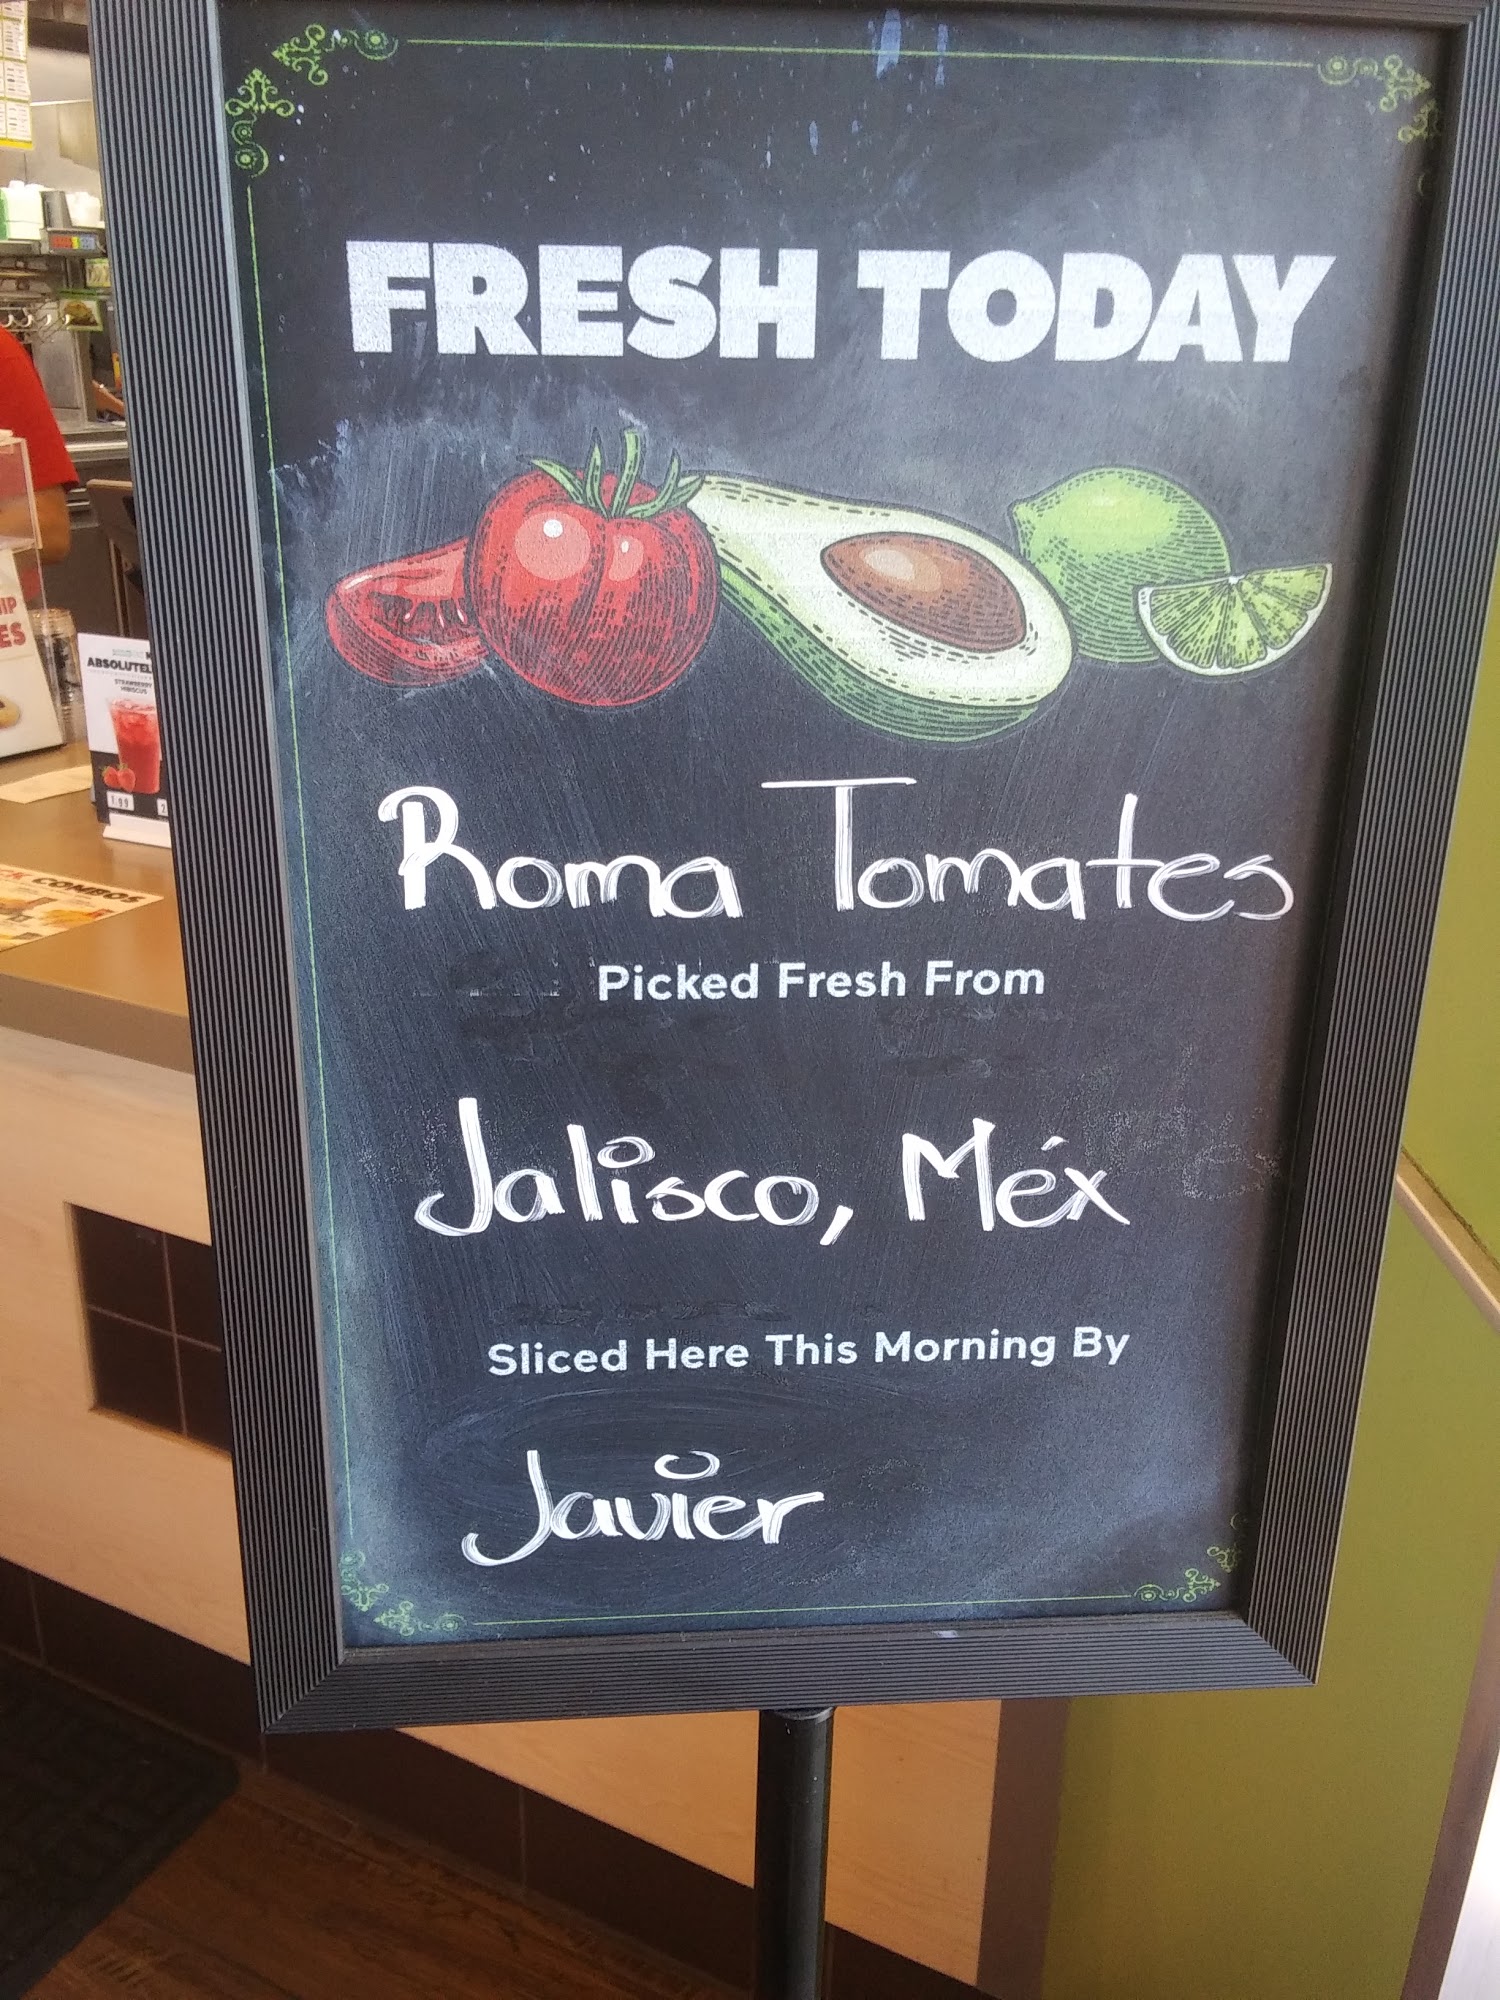 FRESH TODAY
Roma Tomates
Picked Fresh From
Jalisco, Méx
Sliced Here This Morning By
Javier
ES
ABSOLUTEL
STRAWBERRY
HIBISCUS
1.99
COMBOS